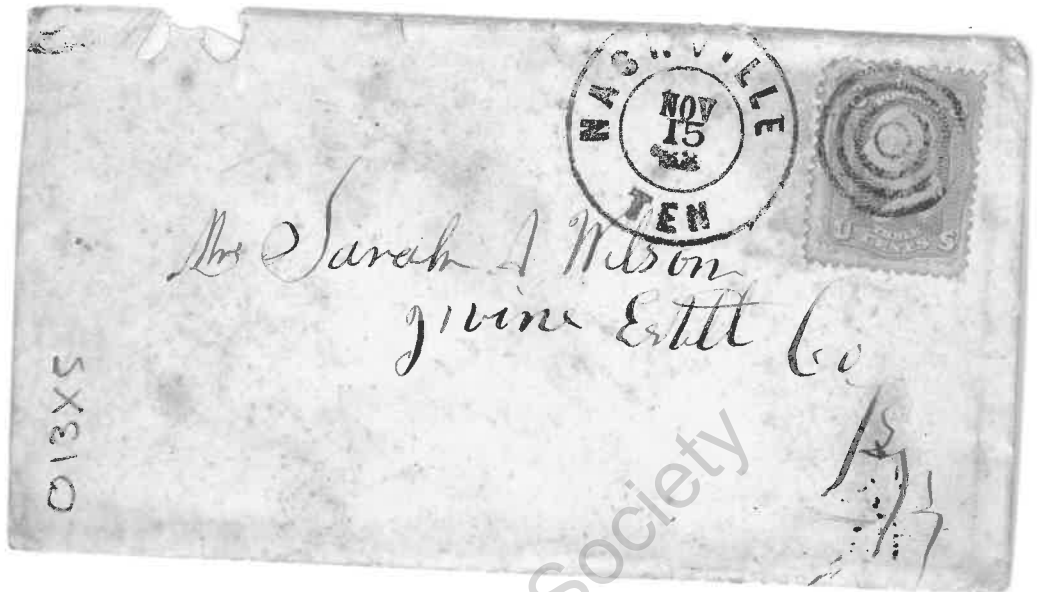 NASHVILLE
NOV
15
TEN
U S
Mrs Sarah A Wilson
Irvine Estill Co
Ky
O13XS
Society